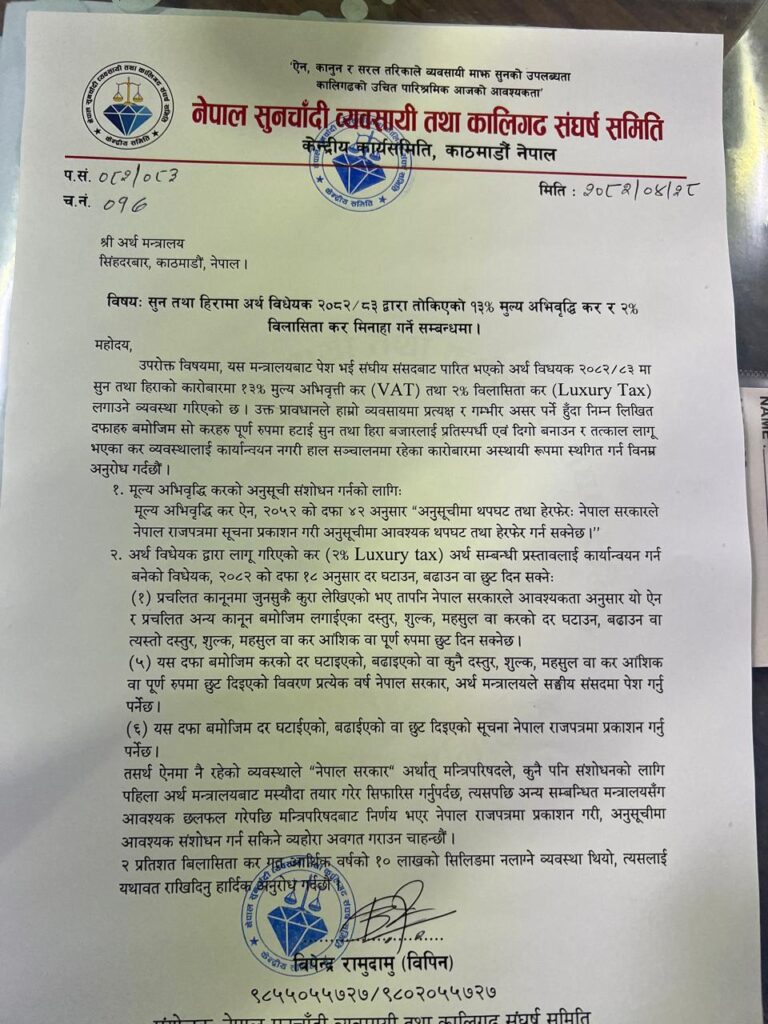 'ऐन, कानुन र सरल तरिकाले व्यवसायी माझ सुनको उपलब्धता
कालिगढको उचित पारिश्रमिक आजको आवश्यकता'
नेपाल सुनचाँदी व्यवसायी तथा कालिगढ संघर्ष समिति
केन्द्रीय कार्यसमिति, काठमाडौं नेपाल
प.सं. ०८२/०८३
च.नं. ०१६
मिति : २०८२/०४/२८
श्री अर्थ मन्त्रालय
सिंहदरबार, काठमाडौं, नेपाल ।
विषयः सुन तथा हिरामा अर्थ विधेयक २०८२/८३ द्वारा तोकिएको १३% मुल्य अभिवृद्धि कर र २%
विलासिता कर मिनाहा गर्ने सम्बन्धमा ।
महोदय,
उपरोक्त विषयमा, यस मन्त्रालयबाट पेश भई संघीय संसदबाट पारित भएको अर्थ विधयक २०८२/८३ मा
सुन तथा हिराको कारोबारमा १३% मुल्य अभिवृत्ती कर (VAT) तथा २% विलासिता कर (Luxury Tax)
लगाउने व्यवस्था गरिएको छ । उक्त प्रावधानले हाम्रो व्यवसायमा प्रत्यक्ष र गम्भीर असर पर्ने हुँदा निम्न लिखित
दफाहरु बमोजिम सो करहरु पूर्ण रुपमा हटाई सुन तथा हिरा बजारलाई प्रतिस्पर्धी एवं दिगो बनाउन र तत्काल लागू
भएका कर व्यवस्थालाई कार्यान्वयन नगरी हाल सञ्चालनमा रहेका कारोबारमा अस्थायी रूपमा स्थगित गर्न विनम्र
अनुरोध गर्दछौं ।
१. मूल्य अभिवृद्धि करको अनुसूची संशोधन गर्नको लागिः
मूल्य अभिवृद्धि कर ऐन, २०५२ को दफा ४२ अनुसार "अनुसूचीमा थपघट तथा हेरफेरः नेपाल सरकारले
नेपाल राजपत्रमा सूचना प्रकाशन गरी अनुसूचीमा आवश्यक थपघट तथा हेरफेर गर्न सक्नेछ ।"
२. अर्थ विधेयक द्वारा लागू गरिएको कर (२% Luxury tax) अर्थ सम्बन्धी प्रस्तावलाई कार्यान्वयन गर्न
बनेको विधेयक, २०८२ को दफा १८ अनुसार दर घटाउन, बढाउन वा छुट दिन सक्नेः
(१) प्रचलित कानूनमा जुनसुकै कुरा लेखिएको भए तापनि नेपाल सरकारले आवश्यकता अनुसार यो ऐन
र प्रचलित अन्य कानून बमोजिम लगाईएका दस्तुर, शुल्क, महसुल वा करको दर घटाउन, बढाउन वा
त्यस्तो दस्तुर, शुल्क, महसुल वा कर आंशिक वा पूर्ण रुपमा छुट दिन सक्नेछ ।
(५) यस दफा बमोजिम करको दर घटाइएको, बढाइएको वा कुनै दस्तुर, शुल्क, महसुल वा कर आंशिक
वा पूर्ण रुपमा छुट दिइएको विवरण प्रत्येक वर्ष नेपाल सरकार, अर्थ मन्त्रालयले सङ्घीय संसदमा पेश गर्नु
पर्नेछ ।
(६) यस दफा बमोजिम दर घटाईएको, बढाईएको वा छुट दिइएको सूचना नेपाल राजपत्रमा प्रकाशन गर्नु
पर्नेछ ।
तसर्थ ऐनमा नै रहेको व्यवस्थाले "नेपाल सरकार" अर्थात् मन्त्रिपरिषदले, कुनै पनि संशोधनको लागि
पहिला अर्थ मन्त्रालयबाट मस्यौदा तयार गरेर सिफारिस गर्नुपर्दछ, त्यसपछि अन्य सम्बन्धित मन्त्रालयसँग
आवश्यक छलफल गरेपछि मन्त्रिपरिषदबाट निर्णय भएर नेपाल राजपत्रमा प्रकाशन गरी, अनुसूचीमा
आवश्यक संशोधन गर्न सकिने व्यहोरा अवगत गराउन चाहन्छौं ।
२ प्रतिशत बिलासिता कर गत आर्थिक वर्षको १० लाखको सिलिडमा नलाग्ने व्यवस्था थियो, त्यसलाई
यथावत राखिदिनु हार्दिक अनुरोध गर्दछौं
बिपेन्द्र रामुदामु (विपिन)
९८५५०५५७२७/९८०२०५५७२७
संयोजक, नेपाल सुनचाँदी व्यवसायी तथा कालिगढ संघर्ष समिति
NAME